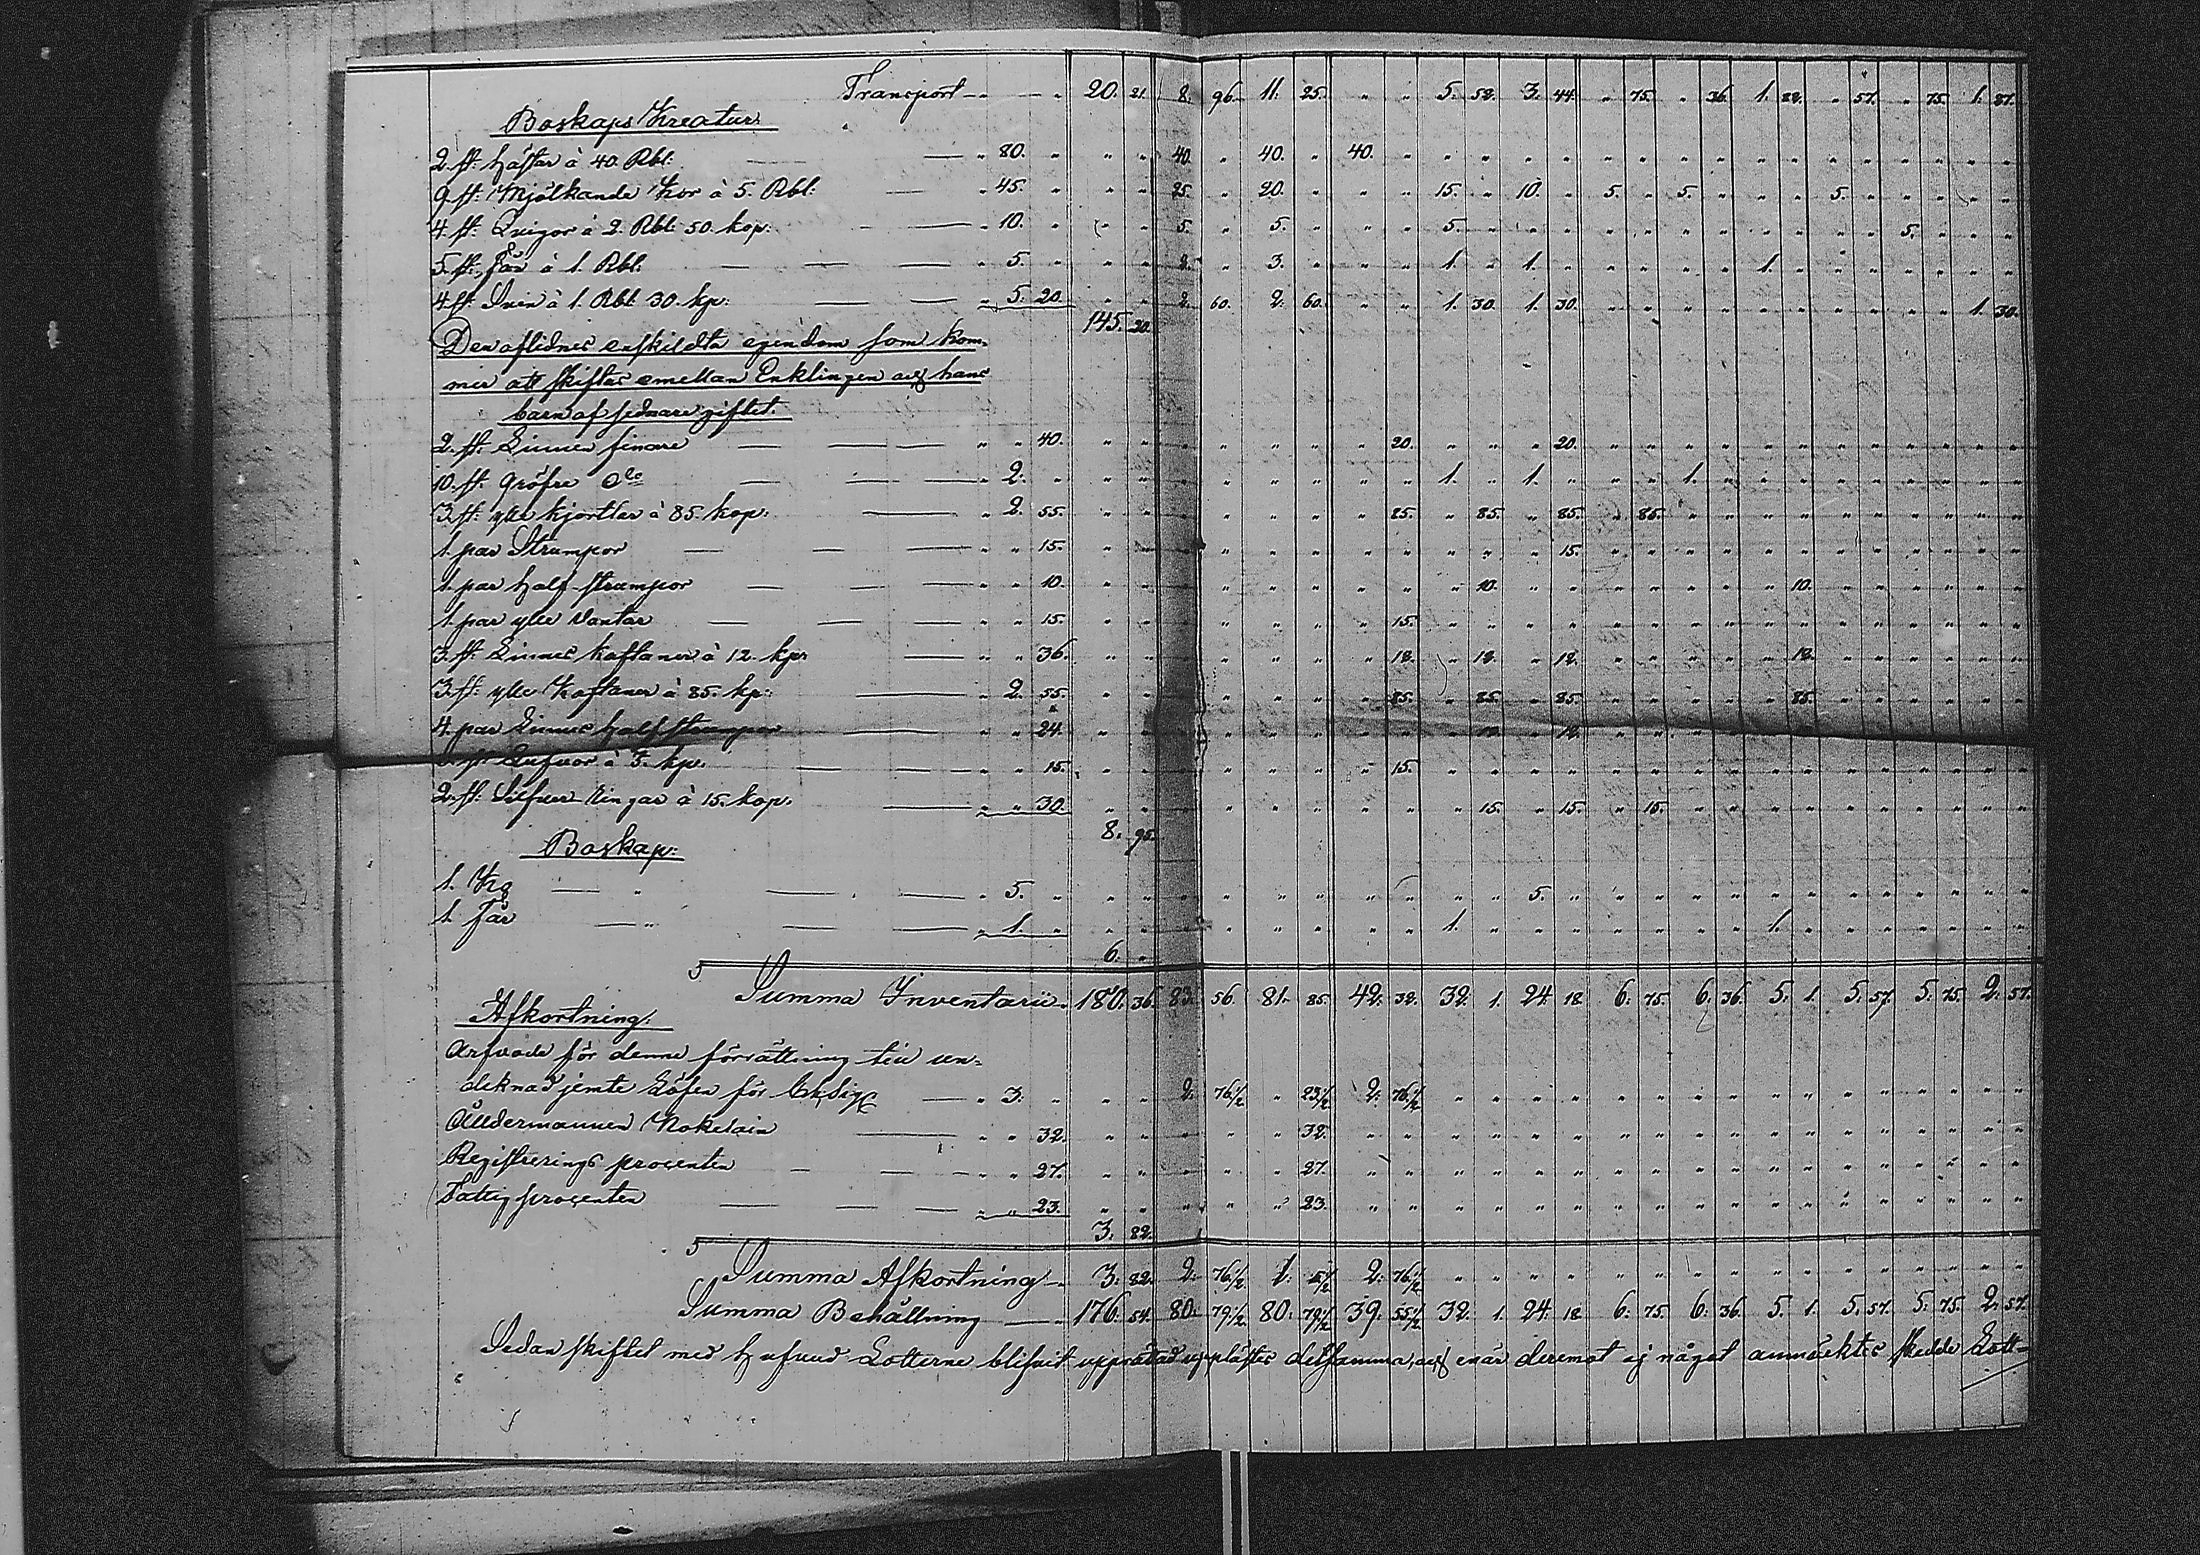 Transport - - " 20. 21. 8. 96. 11. 25. " " 5. 58. 3. 44. " 75. " 36. 1. 28. " 57. " 75. 1. 27.
Boskaps Kreatur:
2. st: Hästar à 40. Rbl: — — " 80. " " " 40. " 40. " 40. " " " " " " " " " " " " " " " " "
9. st: Mjölkande Kor à 5. Rbl: — " 45. " " " 25. " 20. " " " 15. " 10. " 5. " 5. " " " 5. " " " " "
4. st: Quigor à 2. Rbl: 50. kop: - — " 10. " " " 5. " 5. " " " 5. " " " " " " " " " " " 5. " " "
5. st: Får à 1. Rbl: — — — " 5. " " " 2. " 3. " " " 1. " 1. " " " " " 1. " " " " " " "
4. st: Svin à 1. Rbl: 30. kp: — — " 5. 20. " " 2. 60. 2. 60. " " 1. 30. 1. 30. " " " " " " " " " " 1. 30.
145. 20.
Den aflidnes enskildta egendom som kom-
mer att skiftas emellan Enklingen och hans
barn af sednare giftet.
2. st: Linnen finare — — — " " 40. " " " " " " " 20. " " " 20. " " " " " " " " " " " "
10. st: Gröfre d:o — — — " 2. " " " " " " " " " 1. " 1. " " " 1. " " " " " " " " "
3. st: ylle kjortlar à 85. kop: — — " 2. 55. " " " " " " " 85. " 85. " 85. " 85. " " " " " " " " " "
1. par Strumpor — — — " " 15. " " " " " " " " " " " 15. " " " " " " " " " " " "
1. par half strumpor — — — " " 10. " " " " " " " " " 10. " " " " " " " 10. " " " " " "
1. par ylle Vantar — — — " " 15. " " " " " " " 15. " " " " " " " " " " " " " " " "
3. st: Linnes kaftaner à 12. kp: — " " 36. " " " " " " " 12. " 12. " 12. " " " " " 12. " " " " " "
3. st: ylle Kaftaner à 85. kp: — " 2. 55. " " " " " " " 85. " 85. " 85. " " " " " 85. " " " " " "
4. par Linnes half strumpor — " " 24. " " " " " " " " " 12. " 12. " " " " " " " " " " " "
st: à 5. kp: — — " " 15. " " " " " " " 15. " " " " " " " " " " " " " " " "
2. st: Silfver Ringar à 15. kop: — " " 30. " " " " " " " " " 15. " 15. " 15. " " " " " " " " " "
8. 95.
Boskap:
1. Ko — " — — " 5. " " " " " " " " " " " 5. " " " " " " " " " " " " "
1. Får — " — — " 1. " " " " " " " " " 1. " " " " " " " 1. " " " " " " "
6. "
Summa Inventarii - 180. 36. 83. 56. 81. 85. 42. 32. 32. 1. 24. 18. 6. 75. 6. 36. 5. 1. 5. 57. 5. 75. 2. 57.
Afkortning:
Arfvode för denne förrättning till un-
deknad jemte Lösen för — " 3. " " " 2. 76 1/2 " 23 1/2 2. 76 1/2 " " " " " " " " " " " " " " " "
Ålldermannen Nokelain — " " 32. " " " " " 32. " " " " " " " " " " " " " " " " " "
Registrerings procenten - — - " " 27. " " " " " 27. " " " " " " " " " " " " " " " " " "
Fattig procenten — — — " " 23. " " " " " 23. " " " " " " " " " " " " " " " " " "
3. 82.
Summa Afkortning - 3. 82. 2. 76 1/2 1. 5 1/2 2. 76 1/2 " " " " " " " " " " " " " " " "
Summa Behållning — 176. 54. 80. 79 1/2 80. 79 1/2 39. 55 1/2 32. 1. 24. 18. 6. 75. 6. 36. 5. 1. 5. 57. 5. 75. 2. 57.
Sedan skiftet med Hufvud Lotterne blifvit upprättad upplästes detsamma, och enär deremot ej något anmärktes skedde Lott-